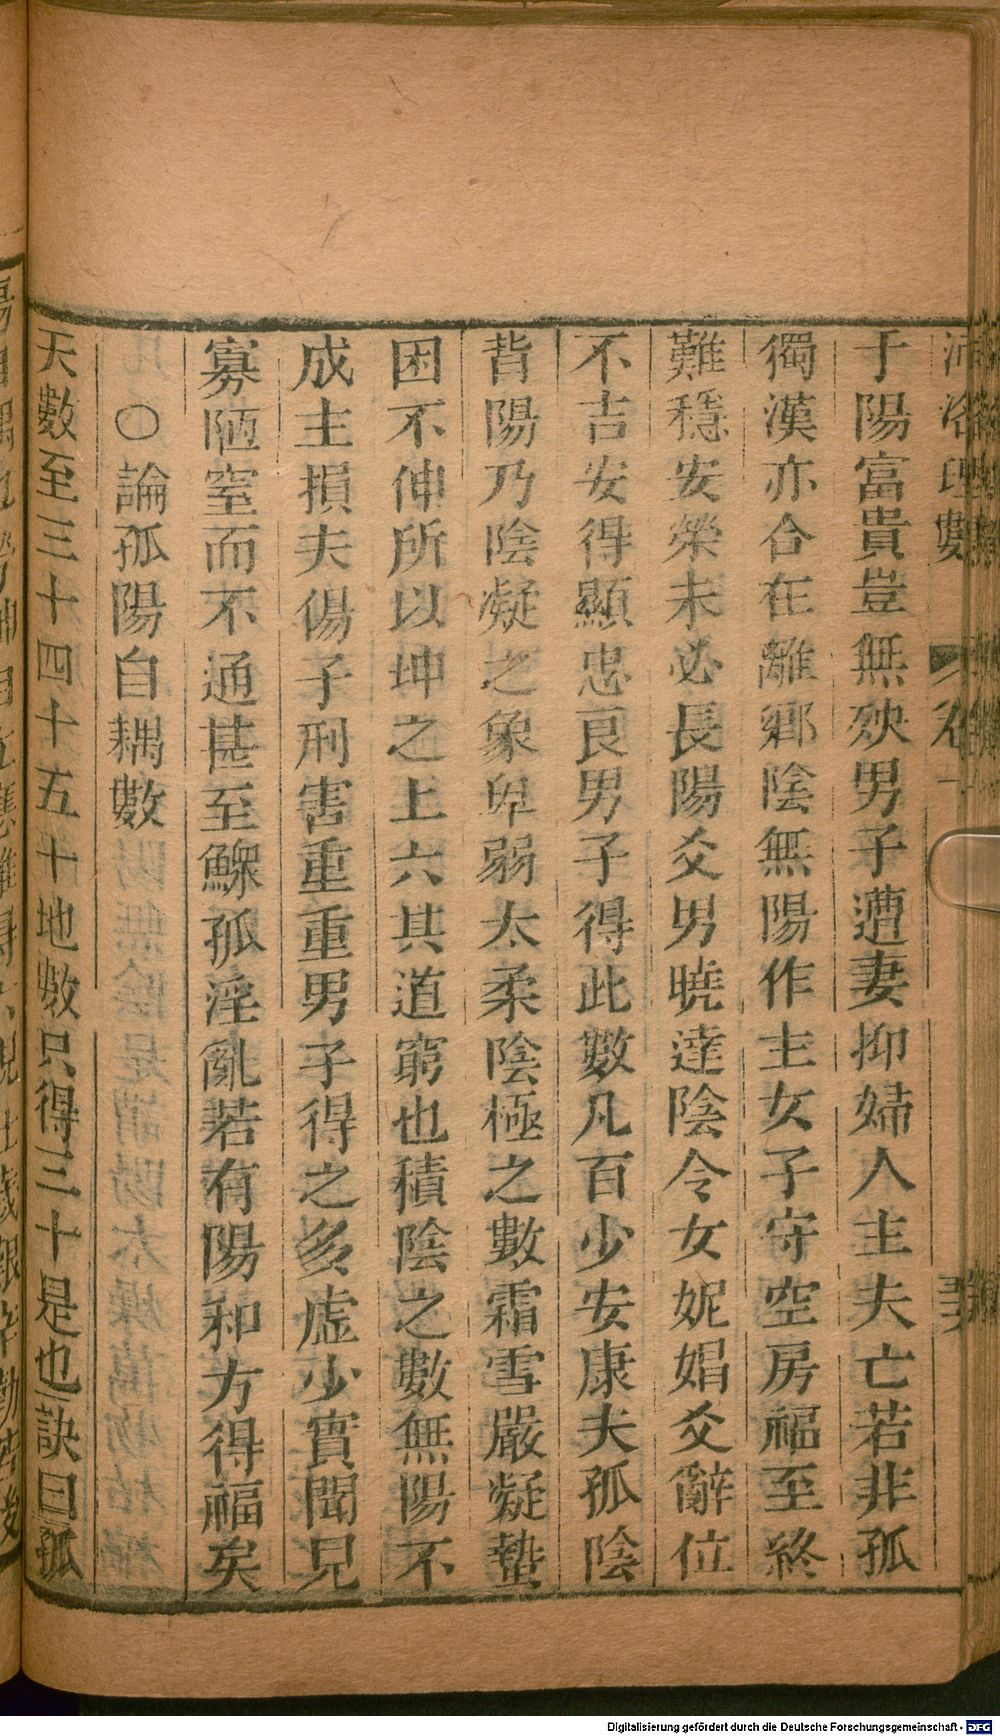 河洛理數 卷一
于陽富貴豈無殃男子遭妻抑婦人主夫亡若非孤
獨漢亦合在離鄉陰無陽作主女子守空房福至終
難穩安榮未必長陽爻男曉達陰令女妮娼爻辭位
不吉安得顯忠良男子得此數凡百少安康夫孤陰
背陽乃陰凝之象卑弱太柔陰極之數霜雪嚴凝蟄
困不伸所以坤之上六其道窮也積陰之數無陽不
成主損夫傷子刑害重重男子得之多虛少實聞見
寡陋窒而不通甚至鰥孤淫亂若有陽和方得福矣
○論孤陽自耦數
天數至三十四十五十地數只得三十是也訣曰孤
Digitalisierung gefördert durch die Deutsche Forschungsgemeinschaft - DFG